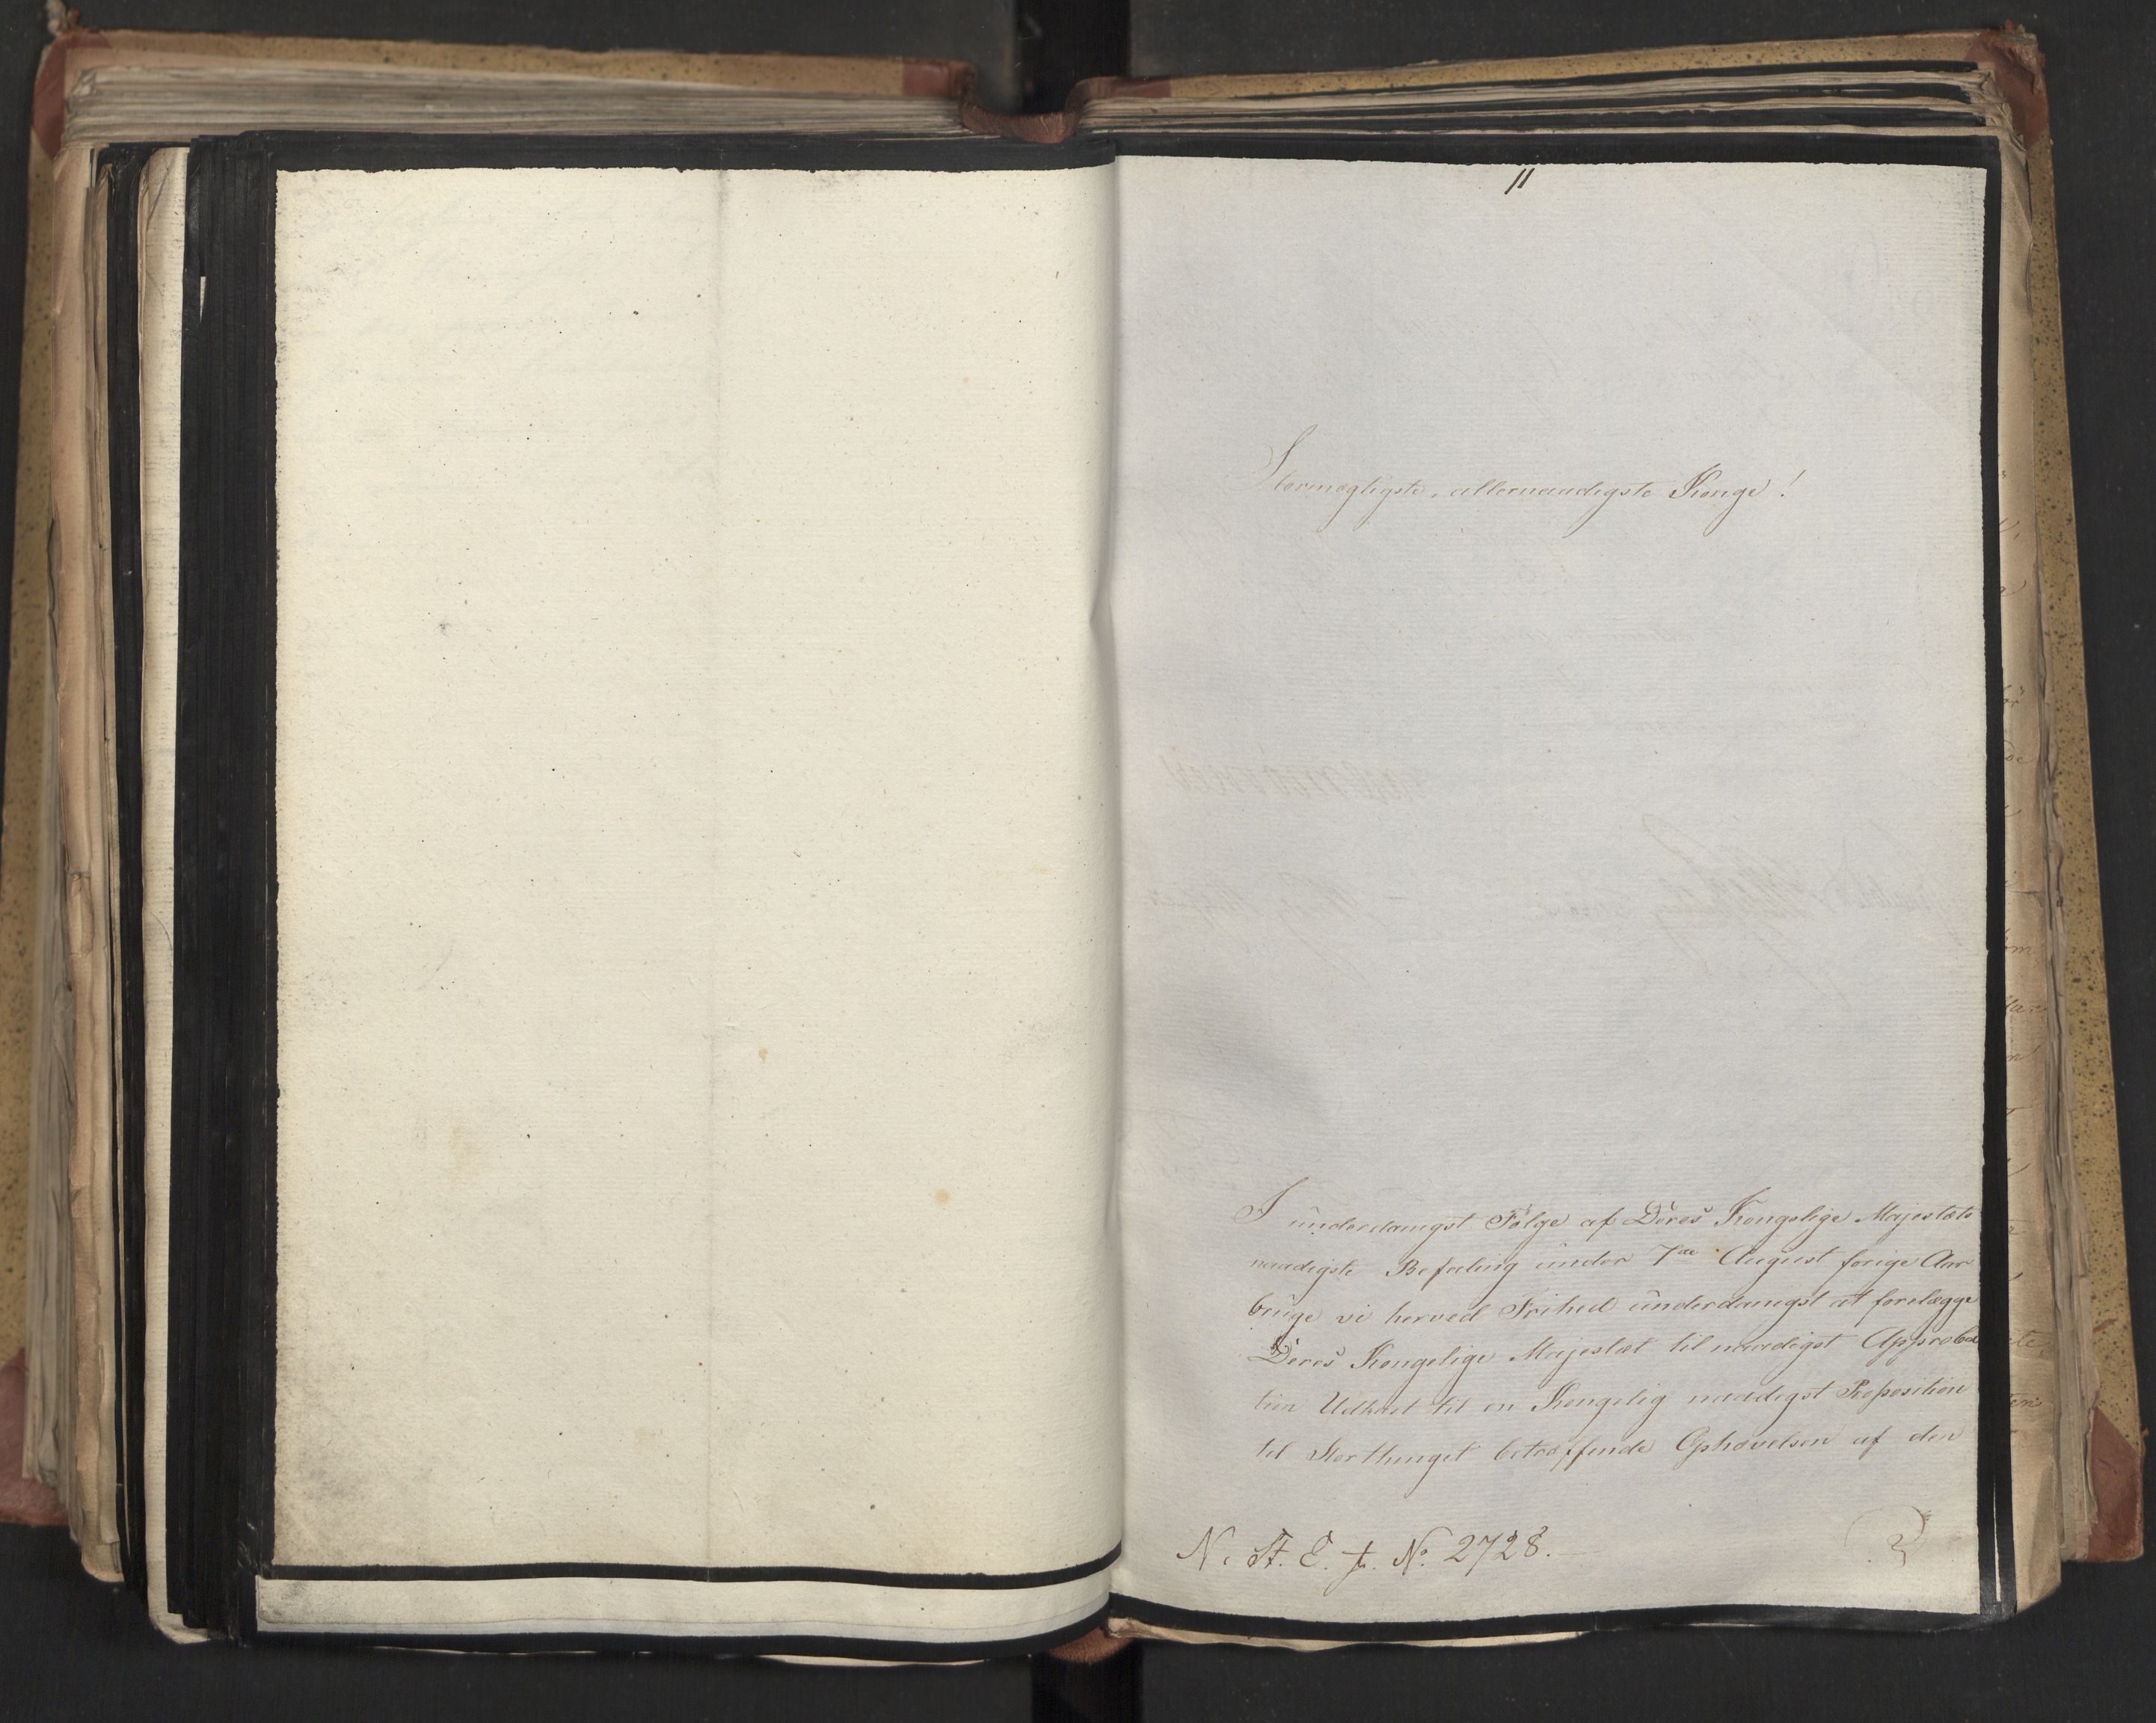 11
Stormægtigste, allernaadigste Konge!
I underdanigst Følge af Deres Kongelige Majestæts
naadigste Befaling under 7de August forige Aar
bruge vi herved Frihed underdanigst at forelægge
Deres Kongelige Majestæt til naadigst Approba
tion Udkast til en Kongelig naadigst Proposition
til Storthinget betræffende Ophævelsen af den
N. St. E. f. No. 2728.